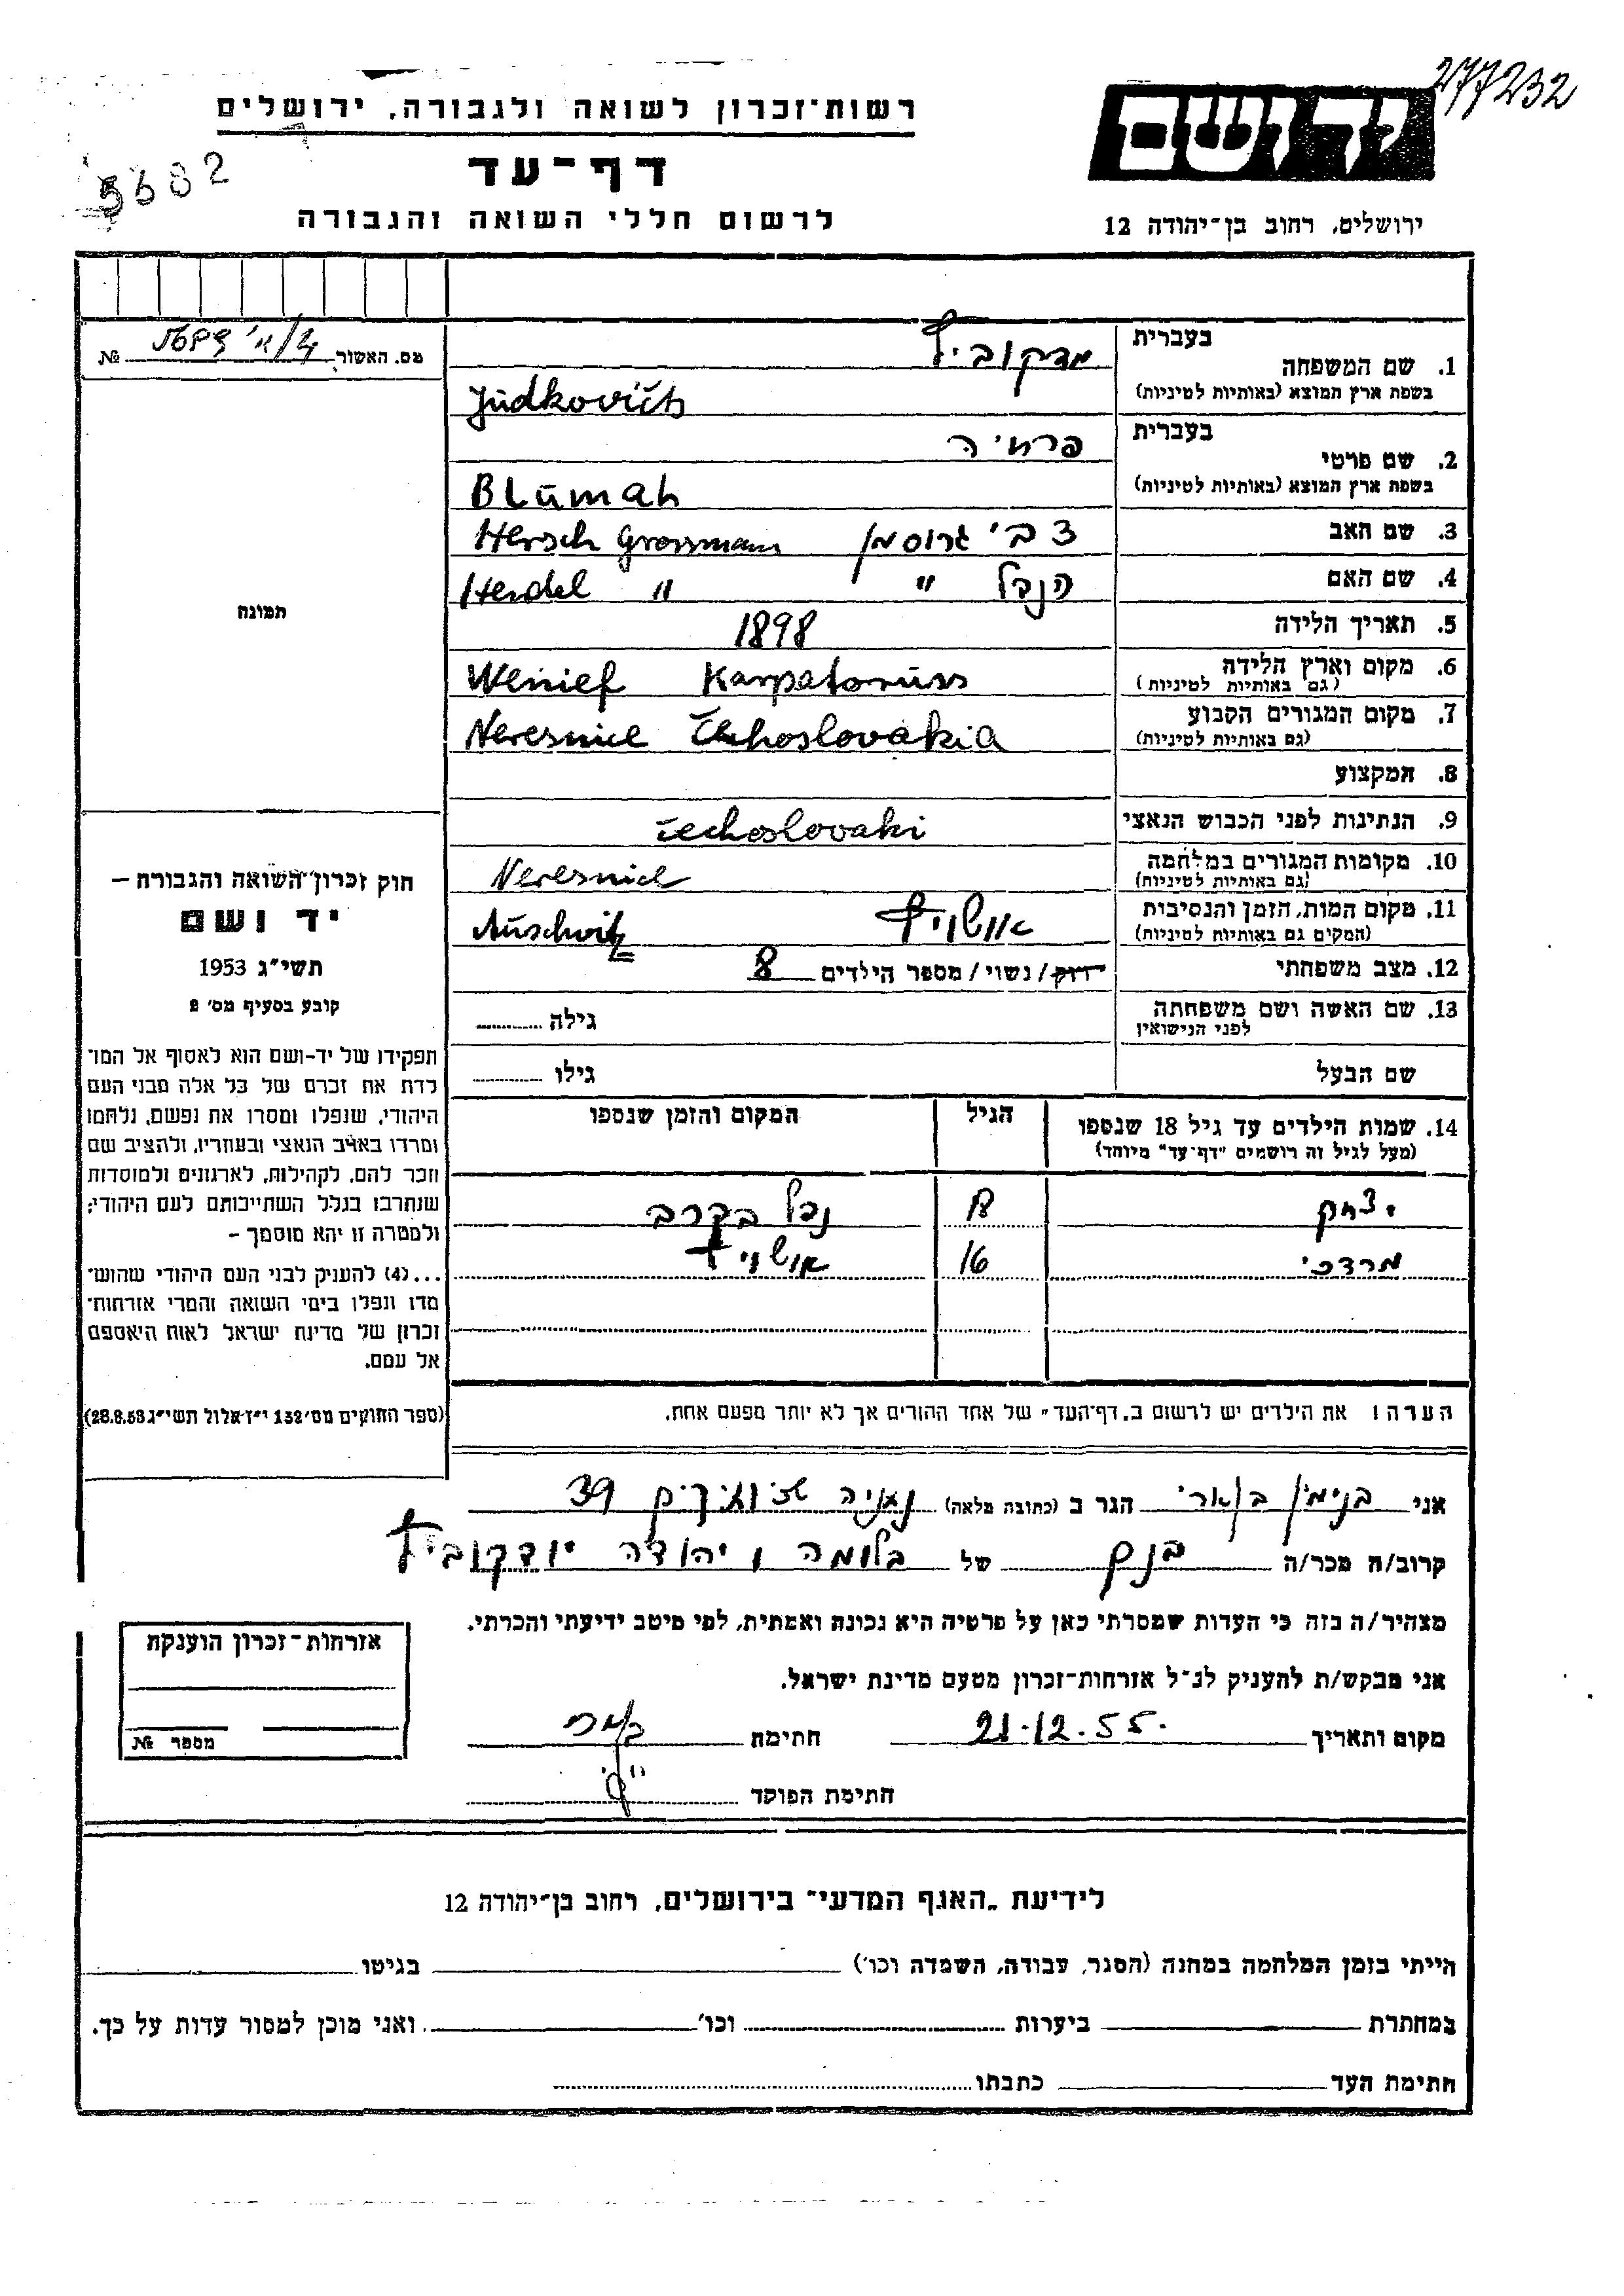 277232
יד ושם
רשות־זכרון לשואה ולגבורה, ירושלים
דף־עד
5682
לרשום חללי השואה והגבורה
ירושלים, רחוב בן־יהודה 12
מס. האשור № 
בעברית
1. שם המשפחה
בשפת ארץ המוצא (באותיות לטיניות)
Jūdkovičh
בעברית
2. שם פרטי פרחיה
בשפת ארץ המוצא (באותיות לטיניות)
Blūmah
3. שם האב צבי גרוסמן Hersch Grossmann
4. שם האם הנדל " Hendel "
5. תאריך הלידה 1898
6. מקום וארץ הלידה
(גם באותיות לטיניות)
Wenief Karpatorūss
7. מקום המגורים הקבוע
(גם באותיות לטיניות)
Neresnice Čechoslovakia
8. המקצוע
9. הנתינות לפני הכבוש הנאצי čechoslovaki
10. מקומות המגורים במלחמה
(גם באותיות לטיניות)
Neresnice
11. מקום המות, הזמן והנסיבות
(המקום גם באותיות לטיניות)
אושויץ Aūschwitz
12. מצב משפחתי רווק/נשוי/מספר הילדים 8
13. שם האשה ושם משפחתה
לפני הנישואין
גילה
שם הבעל גילו
14. שמות הילדים עד גיל 18 שנספו
(מעל לגיל זה רושמים "דף־עד" מיוחד)
הגיל
המקום והזמן שנספו
יצחק 18 נפל בקרב
מרדכי 16 אושויץ
הערה: את הילדים יש לרשום ב„דף־העד" של אחד ההורים אך לא יותר מפעם אחת.
תמונה
חוק זכרון־השואה והגבורה —
יד ושם
תשי"ג 1953
קובע בסעיף מס' 2
תפקידו של יד-ושם הוא לאסוף אל המו־
לדת את זכרם של כל אלה מבני העם
היהודי, שנפלו ומסרו את נפשם, נלחמו
ומרדו באויב הנאצי ובעוזריו, ולהציב שם
וזכר להם, לקהילות, לארגונים ולמוסדות
שנחרבו בגלל השתייכותם לעם היהודי;
ולמטרה זו יהא מוסמך –
...(4) להעניק לבני העם היהודי שהוש־
מדו ונפלו בימי השואה והמרי אזרחות־
זכרון של מדינת ישראל לאות היאספם
אל עמם.
(ספר החוקים מס' 132 י"ז אלול תשי"ג 28.8.53)
אני בנימין בן ארי הגר ב (כתובת מלאה) נתניה 39
קרוב/ה מכר/ה בנם של בלומה ויהודה יודקוביץ
מצהיר/ה בזה כי העדות שמסרתי כאן על פרטיה היא נכונה ואמתית, לפי מיטב ידיעתי והכרתי.
אני מבקש/ת להעניק לנ"ל אזרחות־זכרון מטעם מדינת ישראל.
מקום ותאריך 21.12.55 חתימה
חתימת הפוקד
אזרחות־זכרון הוענקה
מספר №
לידיעת „האגף המדעי" בירושלים, רחוב בן־יהודה 12
הייתי בזמן המלחמה במחנה (הסגר, עבודה, השמדה וכו') בגיטו
במחתרת ביערות וכו' ואני מוכן למסור עדות על כך.
חתימת העד כתבתו